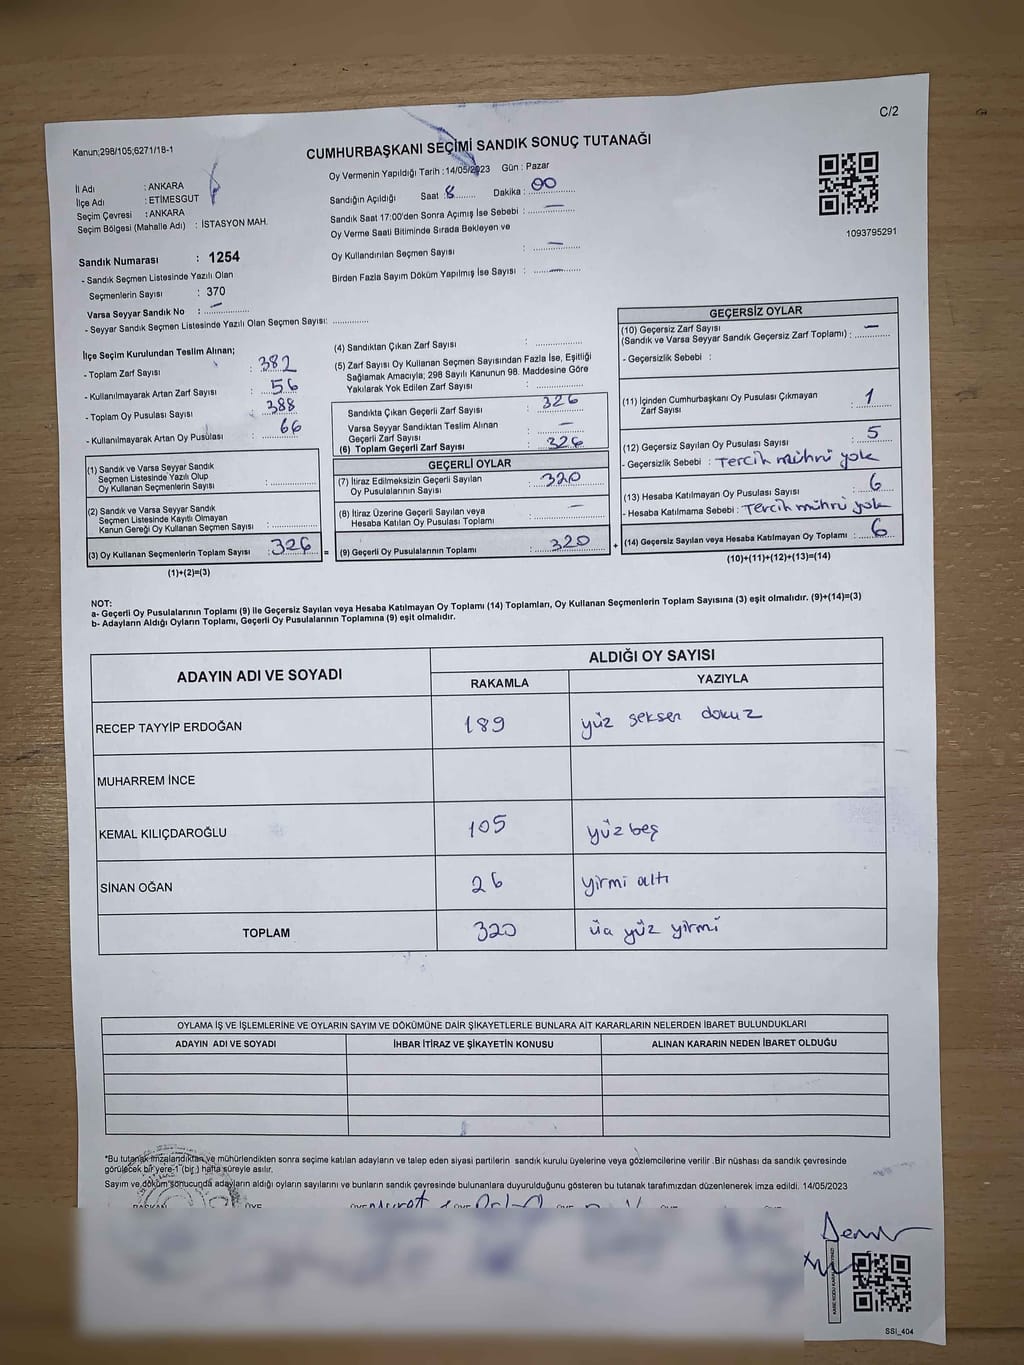 C/2
Kanun;298/105;6271/18-1
CUMHURBAŞKANI SEÇİMİ SANDIK SONUÇ TUTANAĞI
Oy Vermenin Yapıldığı Tarih :14/05/2023 Gün : Pazar
İl Adı : ANKARA
İlçe Adı : ETİMESGUT
Seçim Çevresi : ANKARA
Seçim Bölgesi (Mahalle Adı) : İSTASYON MAH.
Sandığın Açıldığı Saat : 8 Dakika : 00
Sandık Saat 17:00'den Sonra Açımış İse Sebebi : —
Oy Verme Saati Bitiminde Sırada Bekleyen ve
Oy Kullandırılan Seçmen Sayısı : —
Birden Fazla Sayım Döküm Yapılmış İse Sayısı : —
1093795291
Sandık Numarası : 1254
- Sandık Seçmen Listesinde Yazılı Olan
Seçmenlerin Sayısı : 370
Varsa Seyyar Sandık No : —
- Seyyar Sandık Seçmen Listesinde Yazılı Olan Seçmen Sayısı: ..............
İlçe Seçim Kurulundan Teslim Alınan;
- Toplam Zarf Sayısı : 382
- Kullanılmayarak Artan Zarf Sayısı : 56
- Toplam Oy Pusulası Sayısı : 388
- Kullanılmayarak Artan Oy Pusulası : 66
(1) Sandık ve Varsa Seyyar Sandık
Seçmen Listesinde Yazılı Olup
Oy Kullanan Seçmenlerin Sayısı :
(2) Sandık ve Varsa Seyyar Sandık
Seçmen Listesinde Kayıtlı Olmayan
Kanun Gereği Oy Kullanan Seçmen Sayısı :
(3) Oy Kullanan Seçmenlerin Toplam Sayısı : 326 =
(1)+(2)=(3)
(4) Sandıktan Çıkan Zarf Sayısı :
(5) Zarf Sayısı Oy Kullanan Seçmen Sayısından Fazla İse, Eşitliği
Sağlamak Amacıyla; 298 Sayılı Kanunun 98. Maddesine Göre
Yakılarak Yok Edilen Zarf Sayısı :
Sandıkta Çıkan Geçerli Zarf Sayısı : 326
Varsa Seyyar Sandıktan Teslim Alınan
Geçerli Zarf Sayısı : —
(6) Toplam Geçerli Zarf Sayısı : 326
GEÇERLİ OYLAR
(7) İtiraz Edilmeksizin Geçerli Sayılan
Oy Pusulalarının Sayısı : 320
(8) İtiraz Üzerine Geçerli Sayılan veya
Hesaba Katılan Oy Pusulası Toplamı : —
(9) Geçerli Oy Pusulalarının Toplamı : 320 +
GEÇERSİZ OYLAR
(10) Geçersiz Zarf Sayısı
(Sandık ve Varsa Seyyar Sandık Geçersiz Zarf Toplamı) : —
- Geçersizlik Sebebi :
(11) İçinden Cumhurbaşkanı Oy Pusulası Çıkmayan
Zarf Sayısı : 1
(12) Geçersiz Sayılan Oy Pusulası Sayısı : 5
- Geçersizlik Sebebi : Tercih mührü yok
(13) Hesaba Katılmayan Oy Pusulası Sayısı : 6
- Hesaba Katılmama Sebebi : Tercih mührü yok
(14) Geçersiz Sayılan veya Hesaba Katılmayan Oy Toplamı : 6
(10)+(11)+(12)+(13)=(14)
NOT:
a- Geçerli Oy Pusulalarının Toplamı (9) ile Geçersiz Sayılan veya Hesaba Katılmayan Oy Toplamı (14) Toplamları, Oy Kullanan Seçmenlerin Toplam Sayısına (3) eşit olmalıdır. (9)+(14)=(3)
b- Adayların Aldığı Oyların Toplamı, Geçerli Oy Pusulalarının Toplamına (9) eşit olmalıdır.
ADAYIN ADI VE SOYADI
ALDIĞI OY SAYISI
RAKAMLA YAZIYLA
RECEP TAYYİP ERDOĞAN 189 yüz seksen dokuz
MUHARREM İNCE
KEMAL KILIÇDAROĞLU 105 yüz beş
SİNAN OĞAN 26 yirmi altı
TOPLAM 320 üç yüz yirmi
OYLAMA İŞ VE İŞLEMLERİNE VE OYLARIN SAYIM VE DÖKÜMÜNE DAİR ŞİKAYETLERLE BUNLARA AİT KARARLARIN NELERDEN İBARET BULUNDUKLARI
ADAYIN ADI VE SOYADI İHBAR İTİRAZ VE ŞİKAYETİN KONUSU ALINAN KARARIN NEDEN İBARET OLDUĞU
*Bu tutanak imzalandıktan ve mühürlendikten sonra seçime katılan adayların ve talep eden siyasi partilerin sandık kurulu üyelerine veya gözlemcilerine verilir .Bir nüshası da sandık çevresinde
görülecek bir yere 1 (bir) hafta süreyle asılır.
Sayım ve döküm sonucunda adayların aldığı oyların sayılarını ve bunların sandık çevresinde bulunanlara duyurulduğunu gösteren bu tutanak tarafımızdan düzenlenerek imza edildi. 14/05/2023
BAŞKAN ÜYE
SSI_404